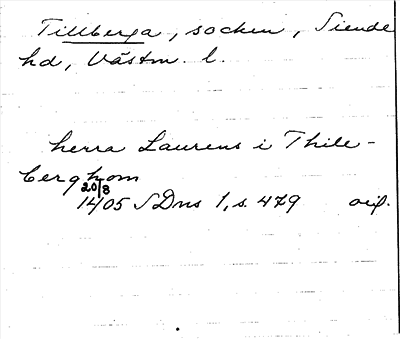 Tillberga, socken, Siende
hd, Västm. l.
herra Laurens i Thile-
berghom
20/8
1405 SDns 1, s. 479 orig.